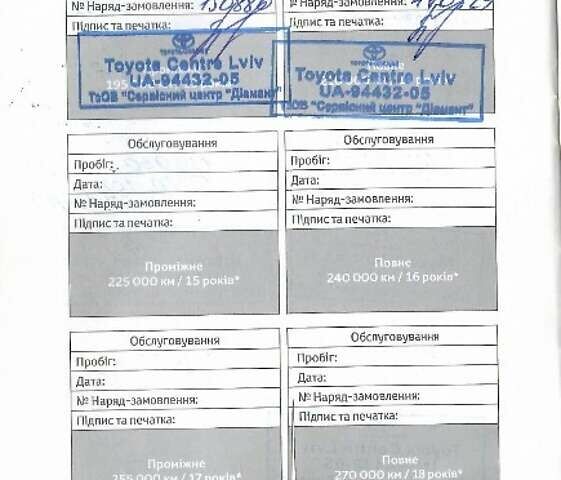 № Наряд-замовлення:
Підпис та печатка:
Toyota Centre Lviv
UA-94432-05
ТзОВ "Сервісний центр "Діамант"
№ Наряд-замовлення:
Підпис та печатка:
Toyota Centre Lviv
UA-94432-05
ТзОВ "Сервісний центр "Діамант"
Обслуговування
Пробіг:
Дата:
№ Наряд-замовлення:
Підпис та печатка:
Проміжне
225 000 км / 15 років*
Обслуговування
Пробіг:
Дата:
№ Наряд-замовлення:
Підпис та печатка:
Повне
240 000 км / 16 років*
Обслуговування
Пробіг:
Дата:
№ Наряд-замовлення:
Підпис та печатка:
Проміжне
255 000 км / 17 років*
Обслуговування
Пробіг:
Дата:
№ Наряд-замовлення:
Підпис та печатка:
Повне
270 000 км / 18 років*